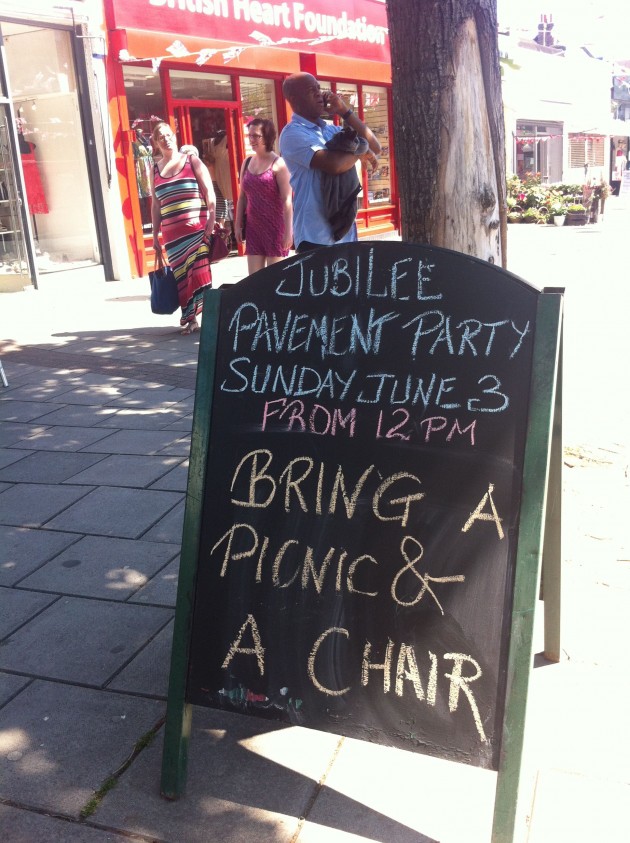 British Heart Foundation
JUBILEE
PAVEMENT PARTY
SUNDAY JUNE 3
FROM 12 PM
BRING A
PICNIC &
A CHAIR